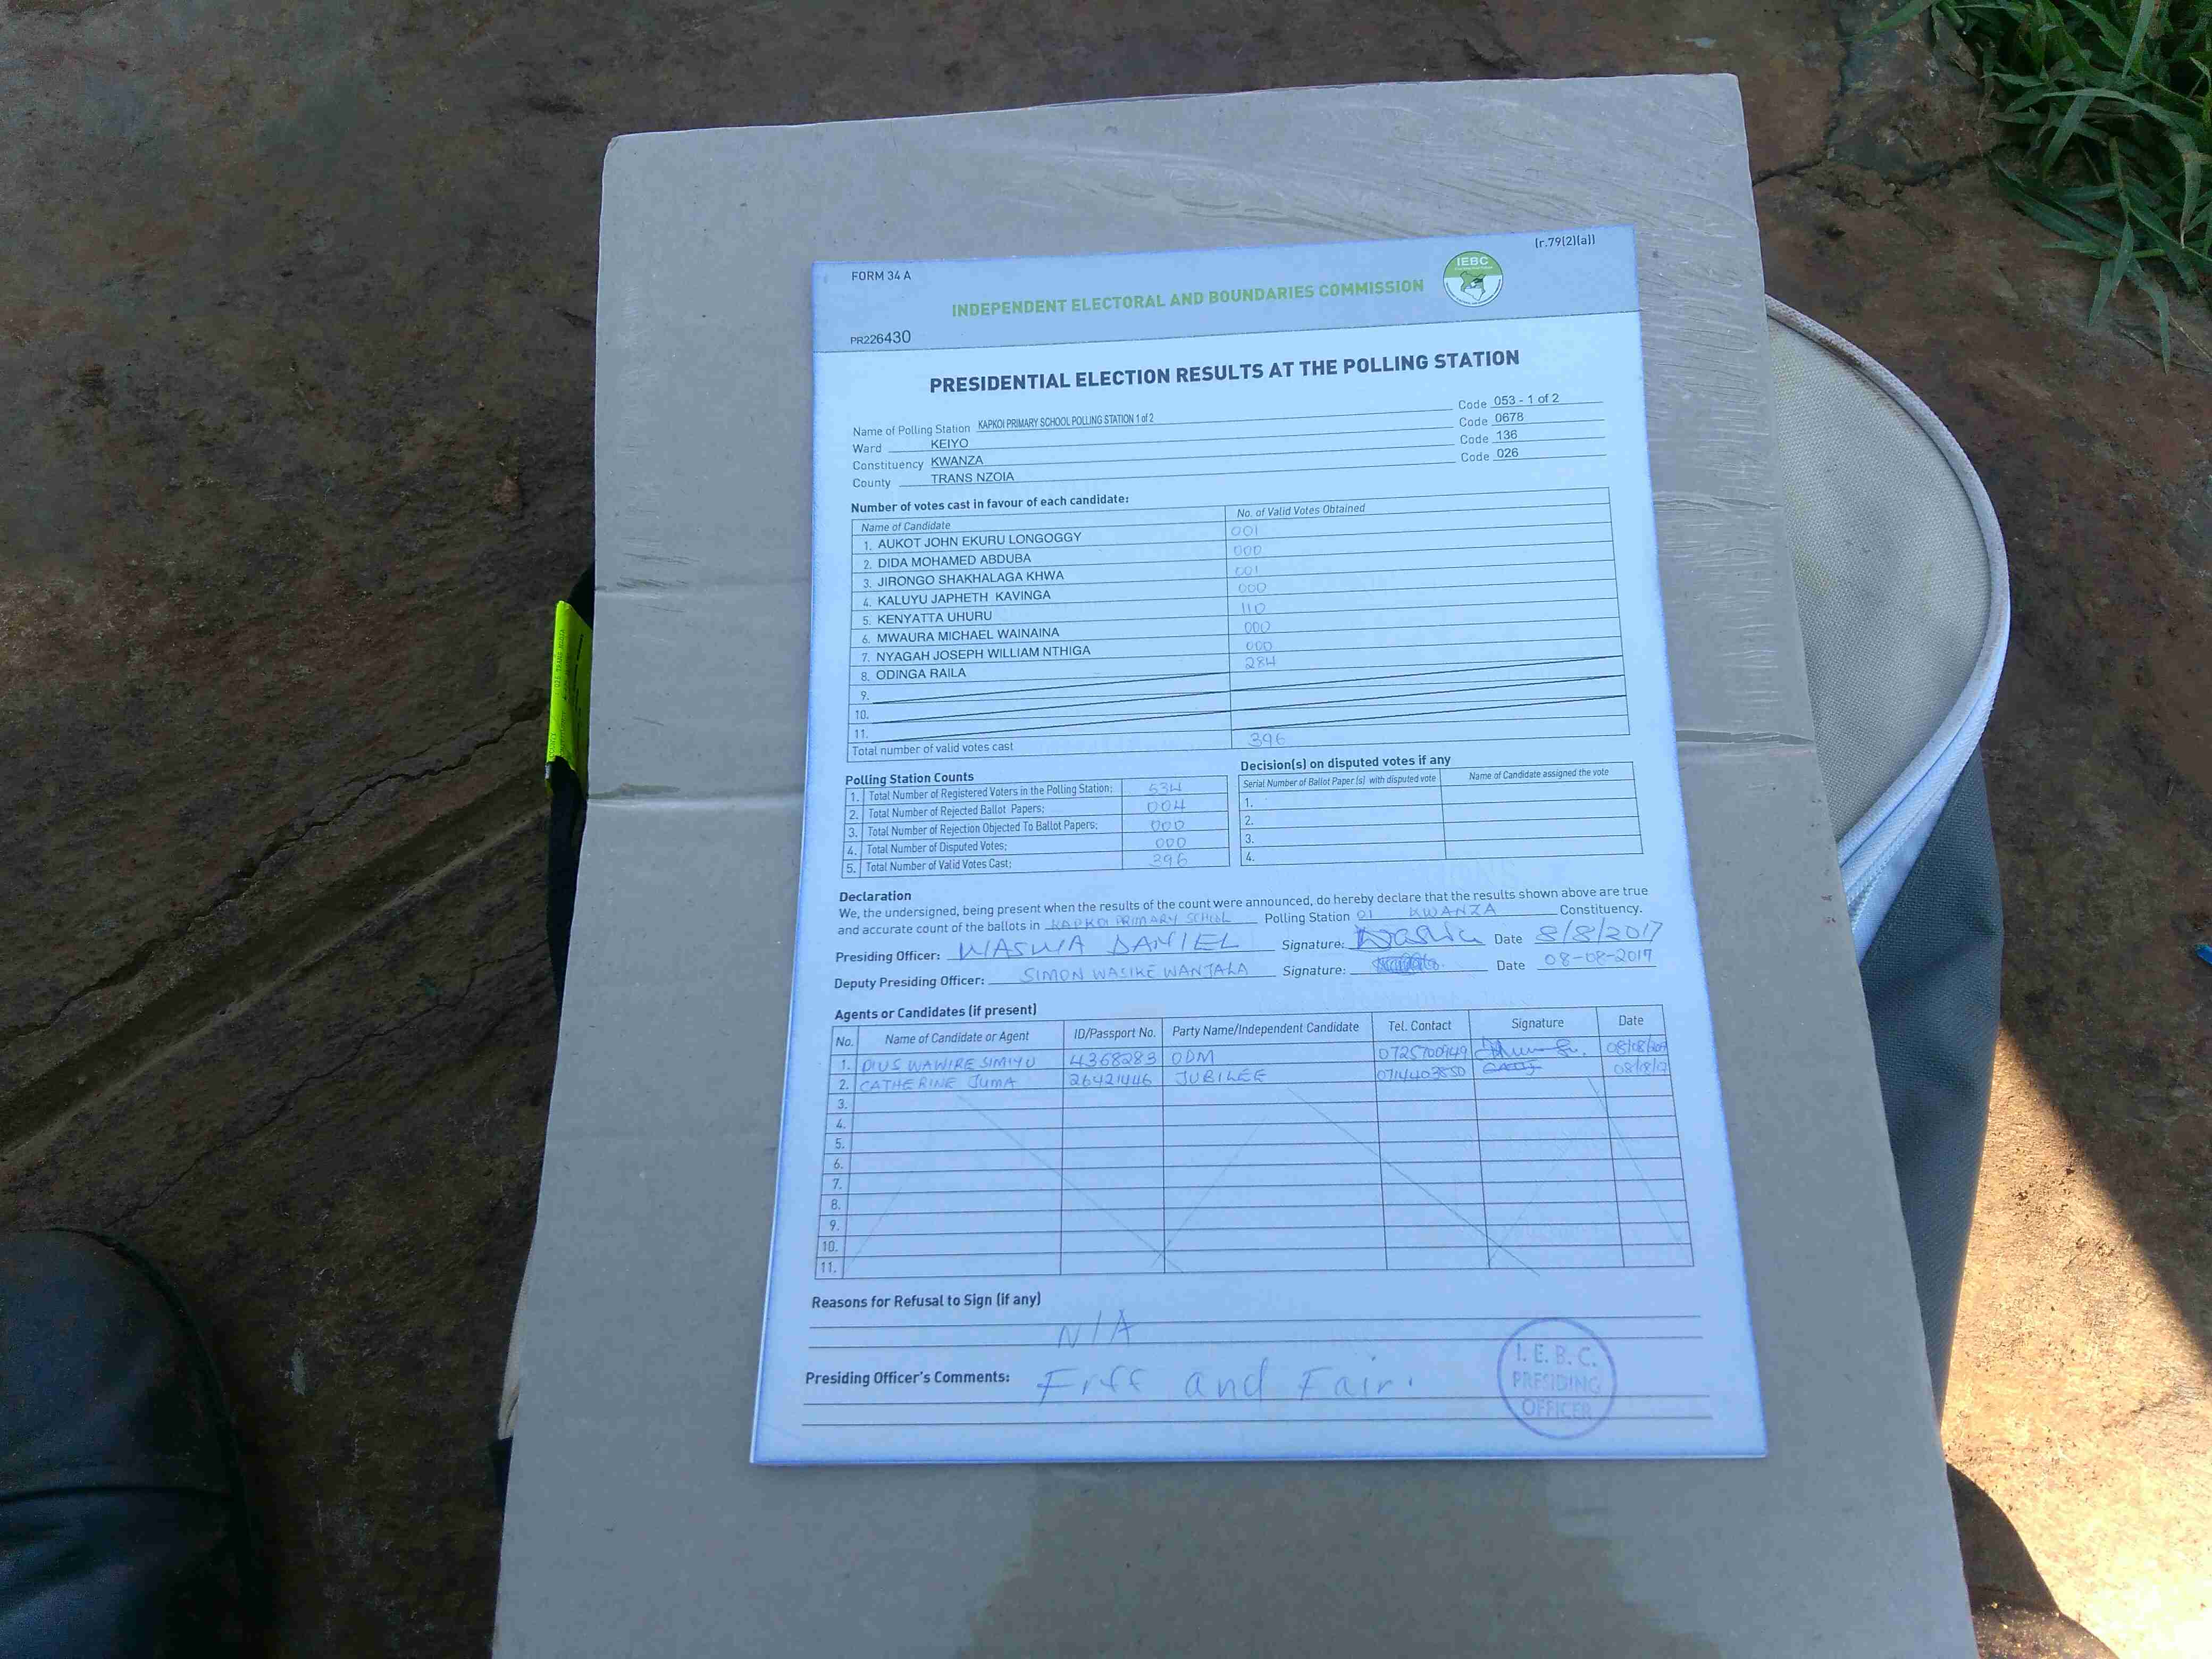 (r.79(2)(a))
FORM 34 A
IEBC
INDEPENDENT ELECTORAL AND BOUNDARIES COMMISSION
PR226430
PRESIDENTIAL ELECTION RESULTS AT THE POLLING STATION
Name of Polling Station KAPKOI PRIMARY SCHOOL POLLING STATION 1 of 2 Code 053 - 1 of 2
Ward KEIYO Code 0678
Constituency KWANZA Code 136
County TRANS NZOIA Code 026
Number of votes cast in favour of each candidate:
Name of Candidate No. of Valid Votes Obtained
1. AUKOT JOHN EKURU LONGOGGY 001
2. DIDA MOHAMED ABDUBA 000
3. JIRONGO SHAKHALAGA KHWA 001
4. KALUYU JAPHETH KAVINGA 000
5. KENYATTA UHURU 110
6. MWAURA MICHAEL WAINAINA 000
7. NYAGAH JOSEPH WILLIAM NTHIGA 000
8. ODINGA RAILA 284
9.
10.
11.
Total number of valid votes cast 396
Polling Station Counts
1. Total Number of Registered Voters in the Polling Station; 534
2. Total Number of Rejected Ballot Papers; 004
3. Total Number of Rejection Objected To Ballot Papers; 000
4. Total Number of Disputed Votes; 000
5. Total Number of Valid Votes Cast; 396
Decision(s) on disputed votes if any
Serial Number of Ballot Paper (s) with disputed vote Name of Candidate assigned the vote
1.
2.
3.
4.
Declaration
We, the undersigned, being present when the results of the count were announced, do hereby declare that the results shown above are true
and accurate count of the ballots in KAPKOI PRIMARY SCHOOL Polling Station 01 KWANZA Constituency.
Presiding Officer: WASWA DANIEL Signature: Date 8/8/2017
Deputy Presiding Officer: SIMON WASIKE WANJALA Signature: Date 08-08-2017
Agents or Candidates (if present)
No. Name of Candidate or Agent ID/Passport No. Party Name/Independent Candidate Tel. Contact Signature Date
1. PIUS WAWIRE SIMIYU 4368283 ODM 0725700949
2. CATHERINE JUMA 26421446 JUBILEE 0714403850
3.
4.
5.
6.
7.
8.
9.
10.
11.
Reasons for Refusal to Sign (if any)
N/A
Presiding Officer's Comments: Free and Fair.
I. E. B. C.
PRESIDING
OFFICER